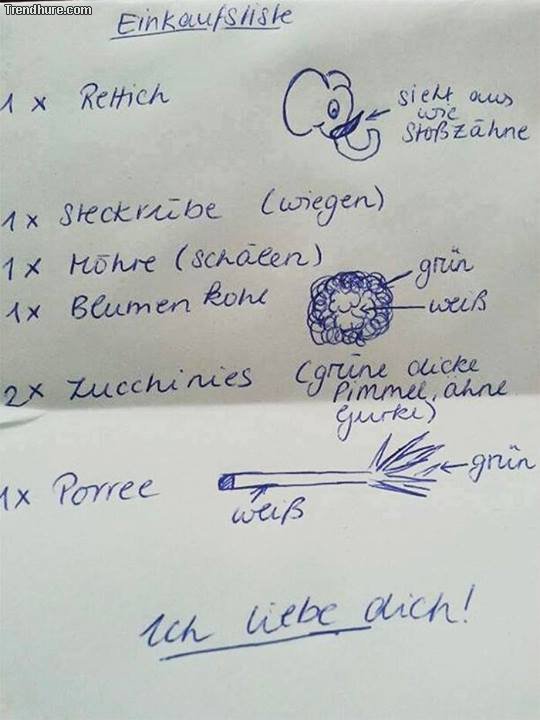 Trendhure.com
Einkaufsliste
1 x Rettich
sieht aus
wie
Stoßzähne
1x Steckrübe (wiegen)
1x Möhre (schälen)
1x Blumenkohl
grün
weiß
2x Zucchinies (grüne dicke
Pimmel, ähne
Gurke)
1x Porree
grün
weiß
Ich liebe dich!